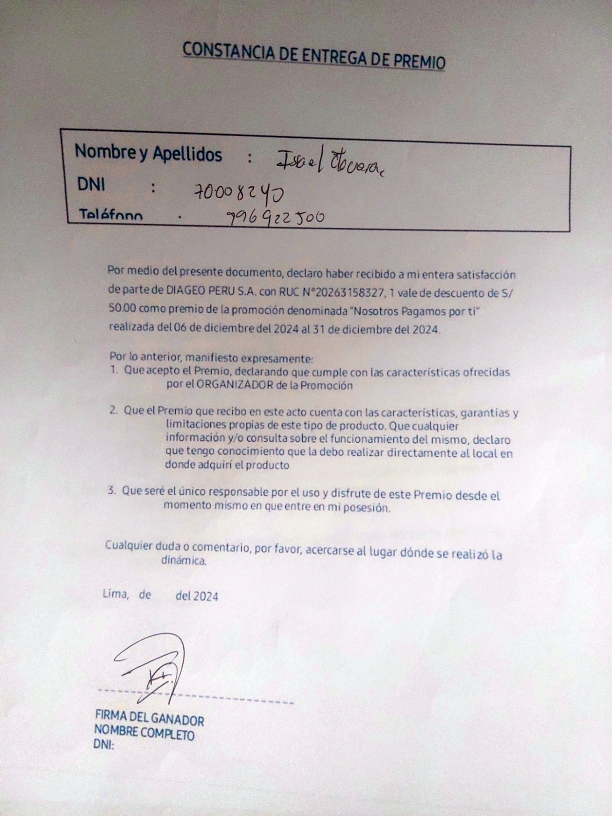 CONSTANCIA DE ENTREGA DE PREMIO
Nombre y Apellidos :
DNI : 70008240
Teléfono : 996922500
Por medio del presente documento, declaro haber recibido a mi entera satisfacción
de parte de DIAGEO PERU S.A. con RUC N°20263158327, 1 vale de descuento de S/
50.00 como premio de la promoción denominada "Nosotros Pagamos por ti"
realizada del 06 de diciembre del 2024 al 31 de diciembre del 2024.
Por lo anterior, manifiesto expresamente:
1. Que acepto el Premio, declarando que cumple con las características ofrecidas
por el ORGANIZADOR de la Promoción
2. Que el Premio que recibo en este acto cuenta con las características, garantías y
limitaciones propias de este tipo de producto. Que cualquier
información y/o consulta sobre el funcionamiento del mismo, declaro
que tengo conocimiento que la debo realizar directamente al local en
donde adquirí el producto
3. Que seré el único responsable por el uso y disfrute de este Premio desde el
momento mismo en que entre en mi posesión.
Cualquier duda o comentario, por favor, acercarse al lugar dónde se realizó la
dinámica.
Lima, de del 2024
FIRMA DEL GANADOR
NOMBRE COMPLETO
DNI: